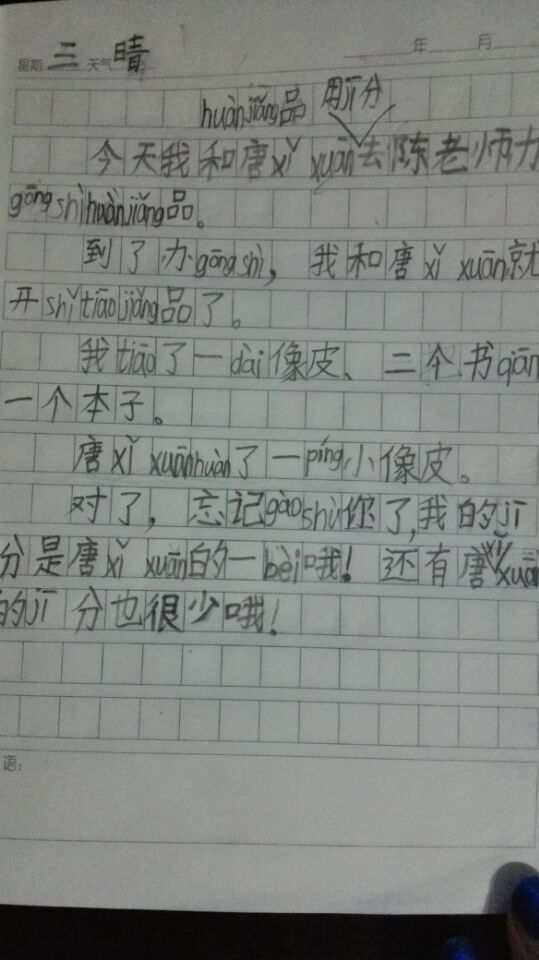 星期 三 天气 晴 年 月
huànjiǎng品 用jī分
今天我和唐xǐ xuān去陈老师办
gōngshìhuànjiǎng品。
到了办gōngshì，我和唐xǐ xuān就
开shǐtiāojiǎng品了。
我tiāo了一dài像皮、二个书qiān
一个本子。
唐xǐ xuānhuàn了一píng小像皮。
对了，忘记gàoshù你了,我的jī
分是唐xǐ xuān的一bèi哦！还有唐xǐ xuān
的jī分也很少哦！
语：